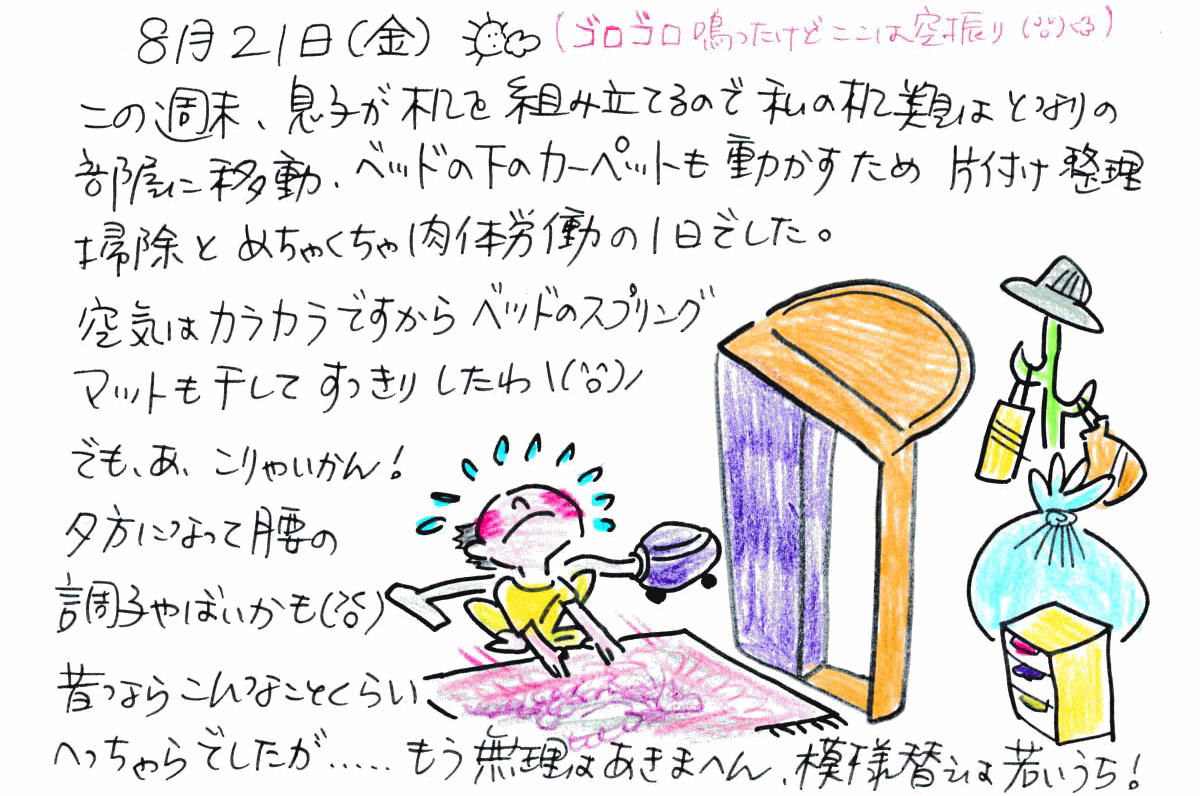 8月21日(金) (ゴロゴロ鳴ったけどここは空振り(>o<))
この週末、息子が机を組み立てるので私の机類はとなりの
部屋に移動、ベッドの下のカーペットも動かすため片付け整理
掃除とめちゃくちゃ肉体労働の1日でした。
空気はカラカラですからベッドのスプリング
マットも干してすっきりしたわ\(^o^)/
でも、あ、こりゃいかん!
夕方になって腰の
調子やばいかも(>o<)
昔ならこんなことくらい
へっちゃらでしたが.....もう無理はあきまへん、模様替えは若いうち!